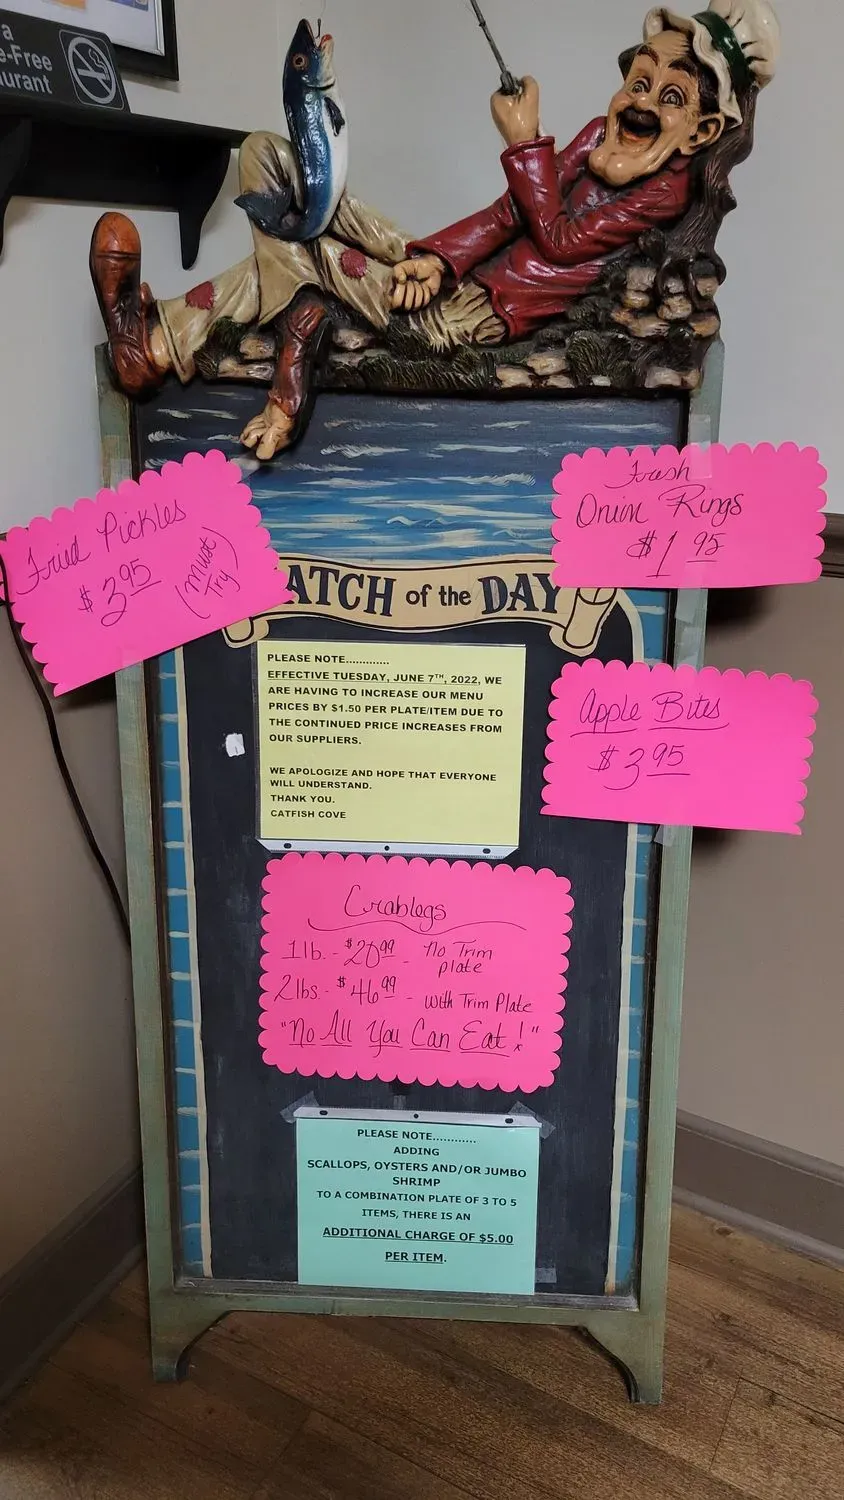 a
e-Free
aurant
Fresh
Onion Rings
$1.95
Fried Pickles
$3.95
(Must
Try)
ATCH of the DAY
PLEASE NOTE.............
EFFECTIVE TUESDAY, JUNE 7TH, 2022, WE
ARE HAVING TO INCREASE OUR MENU
PRICES BY $1.50 PER PLATE/ITEM DUE TO
THE CONTINUED PRICE INCREASES FROM
OUR SUPPLIERS.
WE APOLOGIZE AND HOPE THAT EVERYONE
WILL UNDERSTAND.
THANK YOU.
CATFISH COVE
Apple Bites
$3.95
Crablegs
1 lb. - $20.99 - No Trim
plate
2 lbs. - $46.99 - with Trim Plate
"No All You Can Eat!"
PLEASE NOTE............
ADDING
SCALLOPS, OYSTERS AND/OR JUMBO
SHRIMP
TO A COMBINATION PLATE OF 3 TO 5
ITEMS, THERE IS AN
ADDITIONAL CHARGE OF $5.00
PER ITEM.